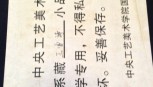 中央工艺美术
系藏
小品
学专用，不得私
坏。妥善保存。
中央工艺美术学院图